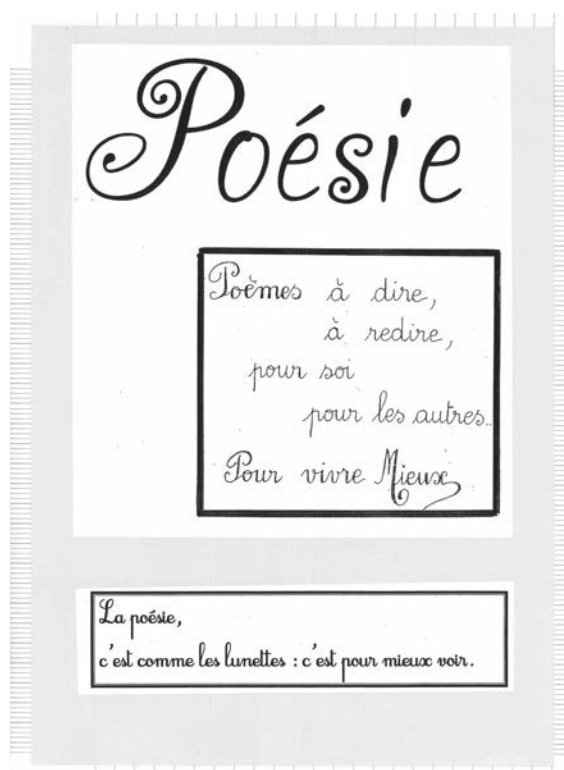 Poésie
Poèmes à dire,
à redire,
pour soi
pour les autres..
Pour vivre Mieux
La poésie,
c'est comme les lunettes : c'est pour mieux voir.